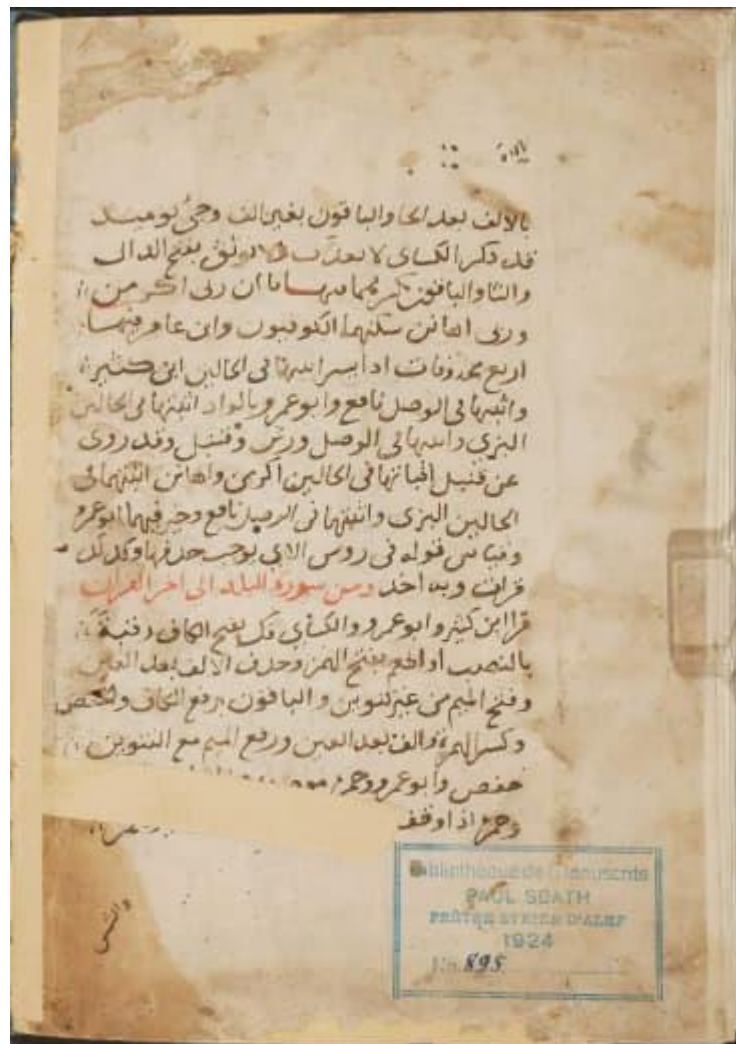 بالالف بعد الحا والباقون بغير الف وجى يوميد
قد ذكر الكساى لا يعذب ولا يوثق بفتح الدال
والثا والباقون بكسرهما فيها يا ان ربى اكرمن
وربى اهانن سكنهما الكوفيون وابن عامر وفيها
اربع محذوفات اذا يسر اثبتها فى الحالين ابن كثير
واثبتها فى الوصل نافع وابو عمرو بالواد اثبتها فى الحالين
البزى واثبتها فى الوصل ورش وقنبل وقد روى
عن قنبل اثباتها فى الحالين اكرمن واهانن اثبتهما فى
الحالين البزى واثبتهما فى الوصل نافع وخير فيهما ابو عمرو
وقياس قوله فى روس الاى يوجب حذفهما وكذلك
قرات وبه اخذ ومن سورة البلد الى اخر القران
قرا ابن كثير وابو عمرو والكساى فك بفتح الكاف رقبة
بالنصب او اطعم بفتح الهمز وحذف الالف بعد العين
وفتح الميم من غير تنوين والباقون برفع الكاف والخفض
وكسر الهمزة والف بعد العين ورفع الميم مع التنوين
حفص وابو عمرو وحمزة
وحمزة اذا وقف
والشمس
Bibliothèque de Manuscrits
PAUL SBATH
PRÊTRE SYRIEN D'ALEP
1924
No. 895